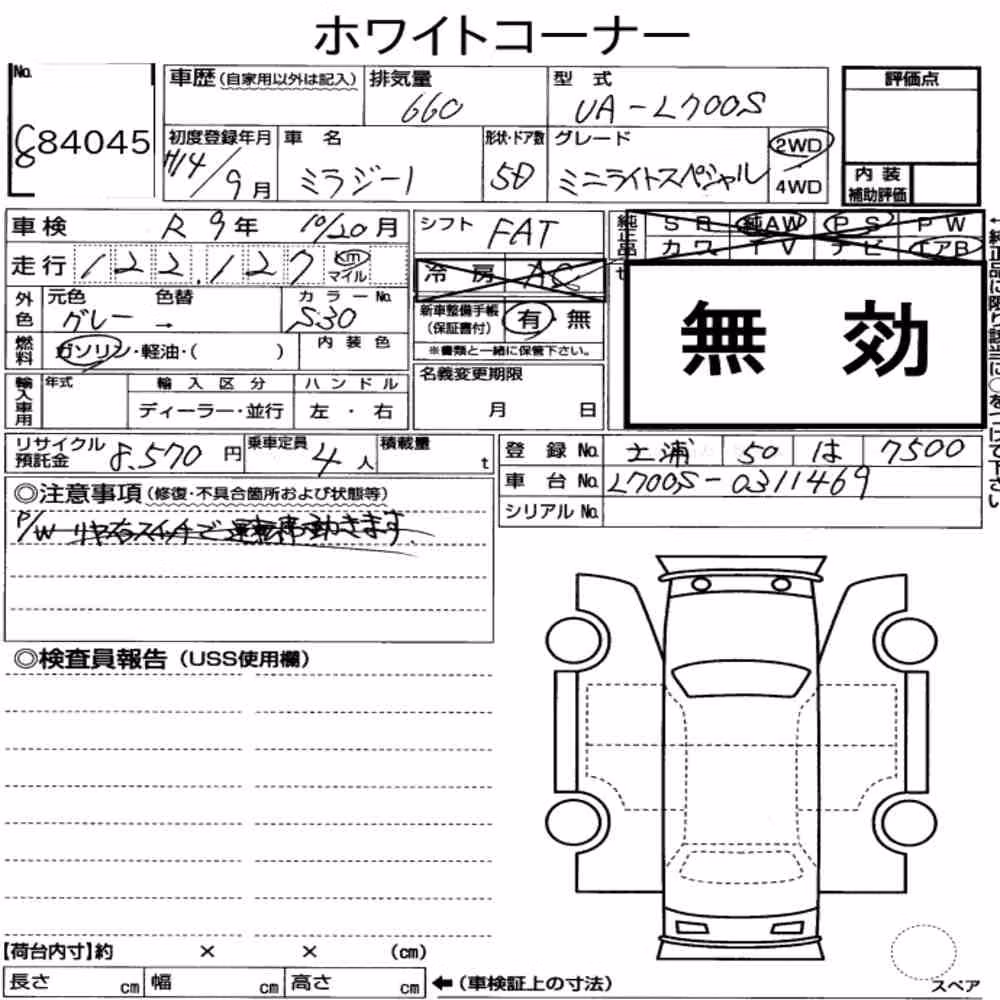 ホワイトコーナー
No.
684045
車歴 (自家用以外は記入)
排気量
660
型 式
UA-L700S
評価点
初度登録年月
H14/9月
車 名
ミラジーノ
形状・ドア数
5D
グレード
ミニライトスペシャル
2WD
4WD
内 装
補助評価
車検 R 9年 10/20月
シフト FAT
純正品
SR 純AW PS PW
カワ TV ナビ エアB
走行 122,127 km マイル
冷 房 AC
外色
元色 色替 カラーNo.
グレー → S30
新車整備手帳
(保証書付)
有・無
※書類と一緒に保管下さい。
無 効
燃料
ガソリン・軽油・( )
内 装 色
輸入車用
年式
輸 入 区 分
ハ ン ド ル
ディーラー・並行
左 ・ 右
名義変更期限
月 日
←純正品に限り該当に○をつけて下さい
リサイクル
預託金
8,570 円
乗車定員
4 人
積載量
t
登 録 No. 土浦 50 は 7500
車 台 No. L700S-0311469
シリアル No.
◎注意事項 (修復・不具合箇所および状態等)
P/W リヤ右スイッチで運転席動きます
◎検査員報告 (USS使用欄)
【荷台内寸】約 × × (cm)
長さ cm 幅 cm 高さ cm ←(車検証上の寸法)
スペア